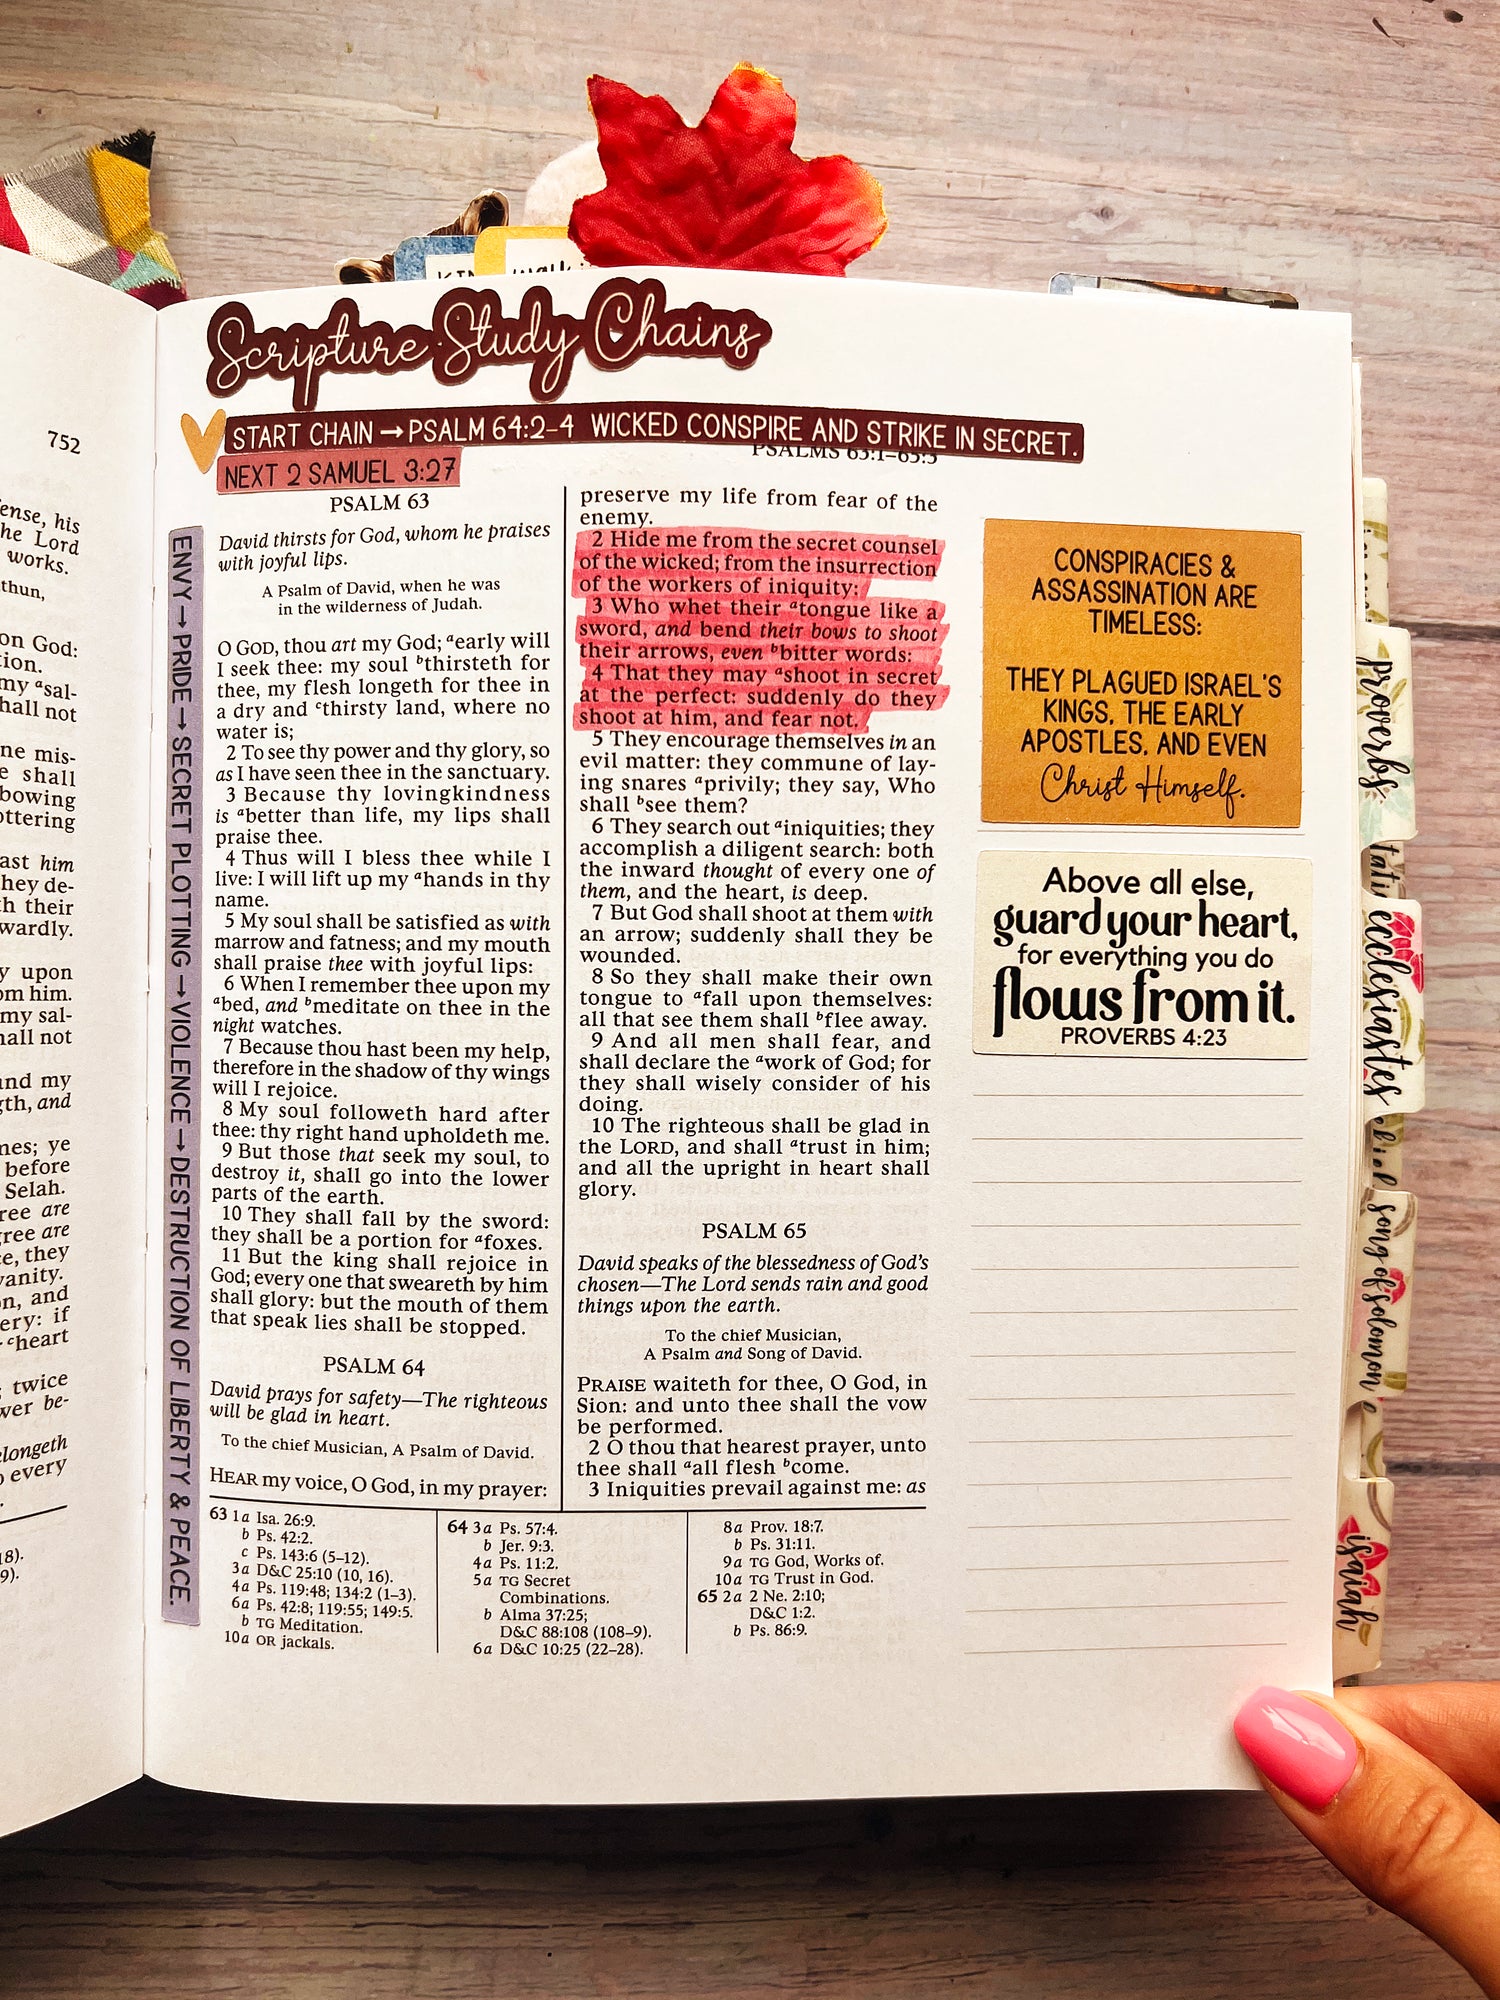 walk
Scripture Study Chains
START CHAIN → PSALM 64:2-4 WICKED CONSPIRE AND STRIKE IN SECRET.
NEXT 2 SAMUEL 3:27
PSALMS 63:1–65:3
ENVY → PRIDE → SECRET PLOTTING → VIOLENCE → DESTRUCTION OF LIBERTY & PEACE.
752
ense, his
he Lord
works.
thun,
on God:
tion.
my ᵃsal-
hall not
ne mis-
e shall
bowing
ottering
ast him
hey de-
h their
wardly.
y upon
om him.
my sal-
hall not
nd my
gth, and
mes; ye
before
Selah.
ree are
gree are
ce, they
vanity.
on, and
ery: if
ᶜheart
twice
wer be-
elongeth
o every
18).
9).
PSALM 63
David thirsts for God, whom he praises
with joyful lips.
A Psalm of David, when he was
in the wilderness of Judah.
O GOD, thou art my God; ᵃearly will
I seek thee: my soul ᵇthirsteth for
thee, my flesh longeth for thee in
a dry and ᶜthirsty land, where no
water is;
2 To see thy power and thy glory, so
as I have seen thee in the sanctuary.
3 Because thy lovingkindness
is ᵃbetter than life, my lips shall
praise thee.
4 Thus will I bless thee while I
live: I will lift up my ᵃhands in thy
name.
5 My soul shall be satisfied as with
marrow and fatness; and my mouth
shall praise thee with joyful lips:
6 When I remember thee upon my
ᵃbed, and ᵇmeditate on thee in the
night watches.
7 Because thou hast been my help,
therefore in the shadow of thy wings
will I rejoice.
8 My soul followeth hard after
thee: thy right hand upholdeth me.
9 But those that seek my soul, to
destroy it, shall go into the lower
parts of the earth.
10 They shall fall by the sword:
they shall be a portion for ᵃfoxes.
11 But the king shall rejoice in
God; every one that sweareth by him
shall glory: but the mouth of them
that speak lies shall be stopped.
PSALM 64
David prays for safety—The righteous
will be glad in heart.
To the chief Musician, A Psalm of David.
HEAR my voice, O God, in my prayer:
preserve my life from fear of the
enemy.
2 Hide me from the secret counsel
of the wicked; from the insurrection
of the workers of iniquity:
3 Who whet their ᵃtongue like a
sword, and bend their bows to shoot
their arrows, even ᵇbitter words:
4 That they may ᵃshoot in secret
at the perfect: suddenly do they
shoot at him, and fear not.
5 They encourage themselves in an
evil matter: they commune of lay-
ing snares ᵃprivily; they say, Who
shall ᵇsee them?
6 They search out ᵃiniquities; they
accomplish a diligent search: both
the inward thought of every one of
them, and the heart, is deep.
7 But God shall shoot at them with
an arrow; suddenly shall they be
wounded.
8 So they shall make their own
tongue to ᵃfall upon themselves:
all that see them shall ᵇflee away.
9 And all men shall fear, and
shall declare the ᵃwork of God; for
they shall wisely consider of his
doing.
10 The righteous shall be glad in
the LORD, and shall ᵃtrust in him;
and all the upright in heart shall
glory.
PSALM 65
David speaks of the blessedness of God's
chosen—The Lord sends rain and good
things upon the earth.
To the chief Musician,
A Psalm and Song of David.
PRAISE waiteth for thee, O God, in
Sion: and unto thee shall the vow
be performed.
2 O thou that hearest prayer, unto
thee shall ᵃall flesh ᵇcome.
3 Iniquities prevail against me: as
63 1a Isa. 26:9.
b Ps. 42:2.
c Ps. 143:6 (5–12).
3a D&C 25:10 (10, 16).
4a Ps. 119:48; 134:2 (1–3).
6a Ps. 42:8; 119:55; 149:5.
b TG Meditation.
10a OR jackals.
64 3a Ps. 57:4.
b Jer. 9:3.
4a Ps. 11:2.
5a TG Secret
Combinations.
b Alma 37:25;
D&C 88:108 (108–9).
6a D&C 10:25 (22–28).
8a Prov. 18:7.
b Ps. 31:11.
9a TG God, Works of.
10a TG Trust in God.
65 2a 2 Ne. 2:10;
D&C 1:2.
b Ps. 86:9.
CONSPIRACIES &
ASSASSINATION ARE
TIMELESS:
THEY PLAGUED ISRAEL'S
KINGS, THE EARLY
APOSTLES, AND EVEN
Christ Himself.
Above all else,
guard your heart,
for everything you do
flows from it.
PROVERBS 4:23
proverbs
ecclesiastes
song of solomon
isaiah